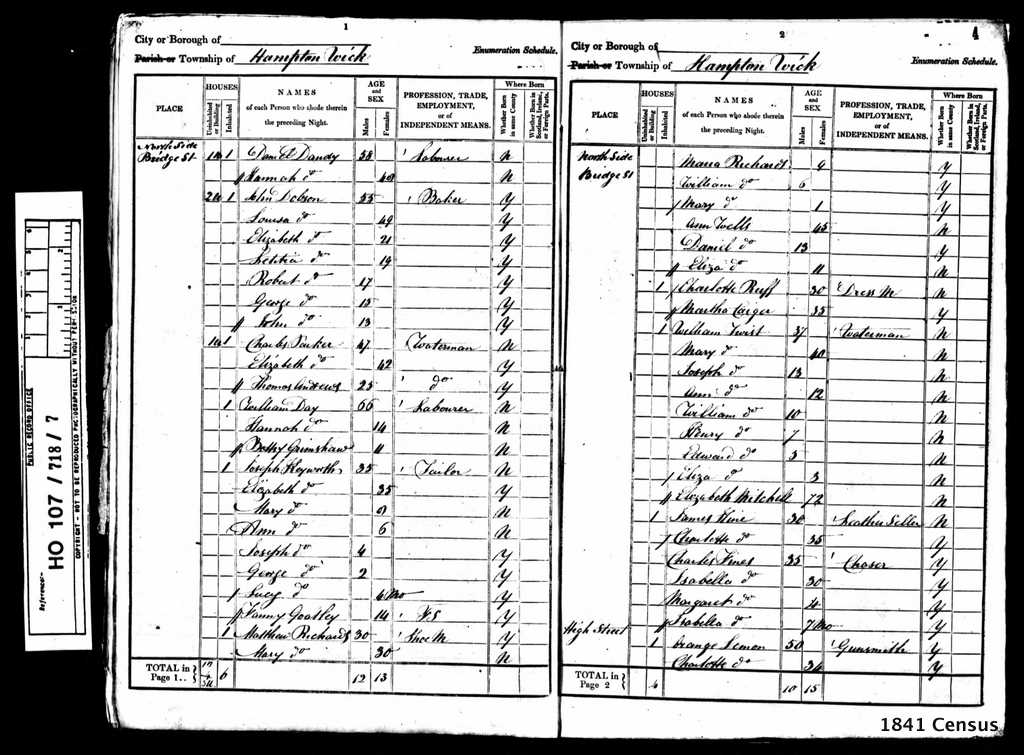 1
City or Borough of
Parish or Township of Hampton Wick
Enumeration Schedule.
PLACE
HOUSES
Uninhabited or Building
Inhabited
NAMES of each Person who abode therein the preceding Night.
AGE and SEX
Males
Females
PROFESSION, TRADE, EMPLOYMENT, or of INDEPENDENT MEANS.
Where Born
Whether Born in same County
Whether Born in Scotland, Ireland, or Foreign Parts.
North Side
Bridge St 1 Daniel Dandy 35 Labourer N
Hannah do 40 N
1 John Dobson 55 Baker Y
Louisa do 49 Y
Elizabeth do 21 Y
Letitia do 19 Y
Robert do 17 Y
George do 15 Y
John do 13 Y
1 Charles Parker 47 Waterman N
Elizabeth do 42 Y
Thomas Andrews 25 do Y
1 William Day 66 Labourer N
Hannah do 14 N
Betsy Grimshaw 11 N
1 Joseph Heyworth 35 Tailor N
Elizabeth do 35 Y
Mary do 9 N
Ann do 6 N
Joseph do 4 Y
George do 2 Y
Lucy do 6 Mo Y
Fanny Goatley 14 F.S Y
1 Matthew Richards 30 Shoe M Y
Mary do 30 N
TOTAL in Page 1 6 12 13
2
4
City or Borough of
Parish or Township of Hampton Wick
Enumeration Schedule.
PLACE
HOUSES
Uninhabited or Building
Inhabited
NAMES of each Person who abode therein the preceding Night.
AGE and SEX
Males
Females
PROFESSION, TRADE, EMPLOYMENT, or of INDEPENDENT MEANS.
Where Born
Whether Born in same County
Whether Born in Scotland, Ireland, or Foreign Parts.
North Side Maria Richards 9 Y
Bridge St William do 6 Y
Mary do 1 Y
Ann Wells 45 N
Daniel do 13 Y
Eliza do 11 N
1 Charlotte Ruff 30 Dress M N
Martha Carger 35 Y
1 William Twist 37 Waterman N
Mary do 40 N
Joseph do 13 N
Ann do 12 N
William do 10 N
Henry do 7 N
Edward do 5 N
Eliza do 3 N
Elizabeth Mitchell 72 N
1 James Hine 30 Leather Seller N
Charlotte do 35 Y
Charles Vines 35 Chaser Y
Isabella do 30 Y
Margaret do 4 Y
Isabella do 7 Mo Y
High Street 1 Orange Lemon 50 Gunsmith Y
Charlotte do 34 Y
TOTAL in Page 2 10 15
PUBLIC RECORD OFFICE
Reference:-
HO 107 / 718 / 7
COPYRIGHT - NOT TO BE REPRODUCED PHOTOGRAPHICALLY WITHOUT PERMISSION
1841 Census